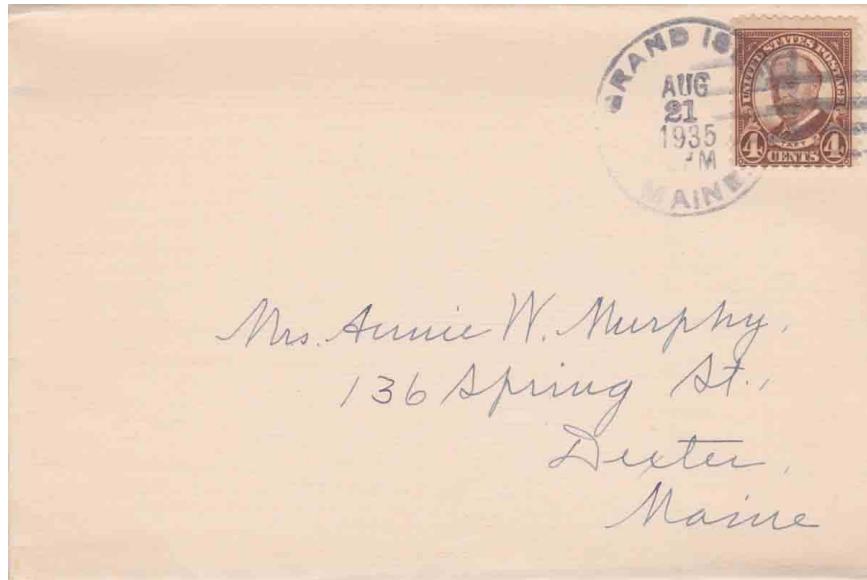 GRAND IS
AUG
21
1935
PM
MAINE.
UNITED STATES POSTAGE
TAFT
4 CENTS 4
Mrs. Annie W. Murphy,
136 Spring St.,
Dexter,
Maine